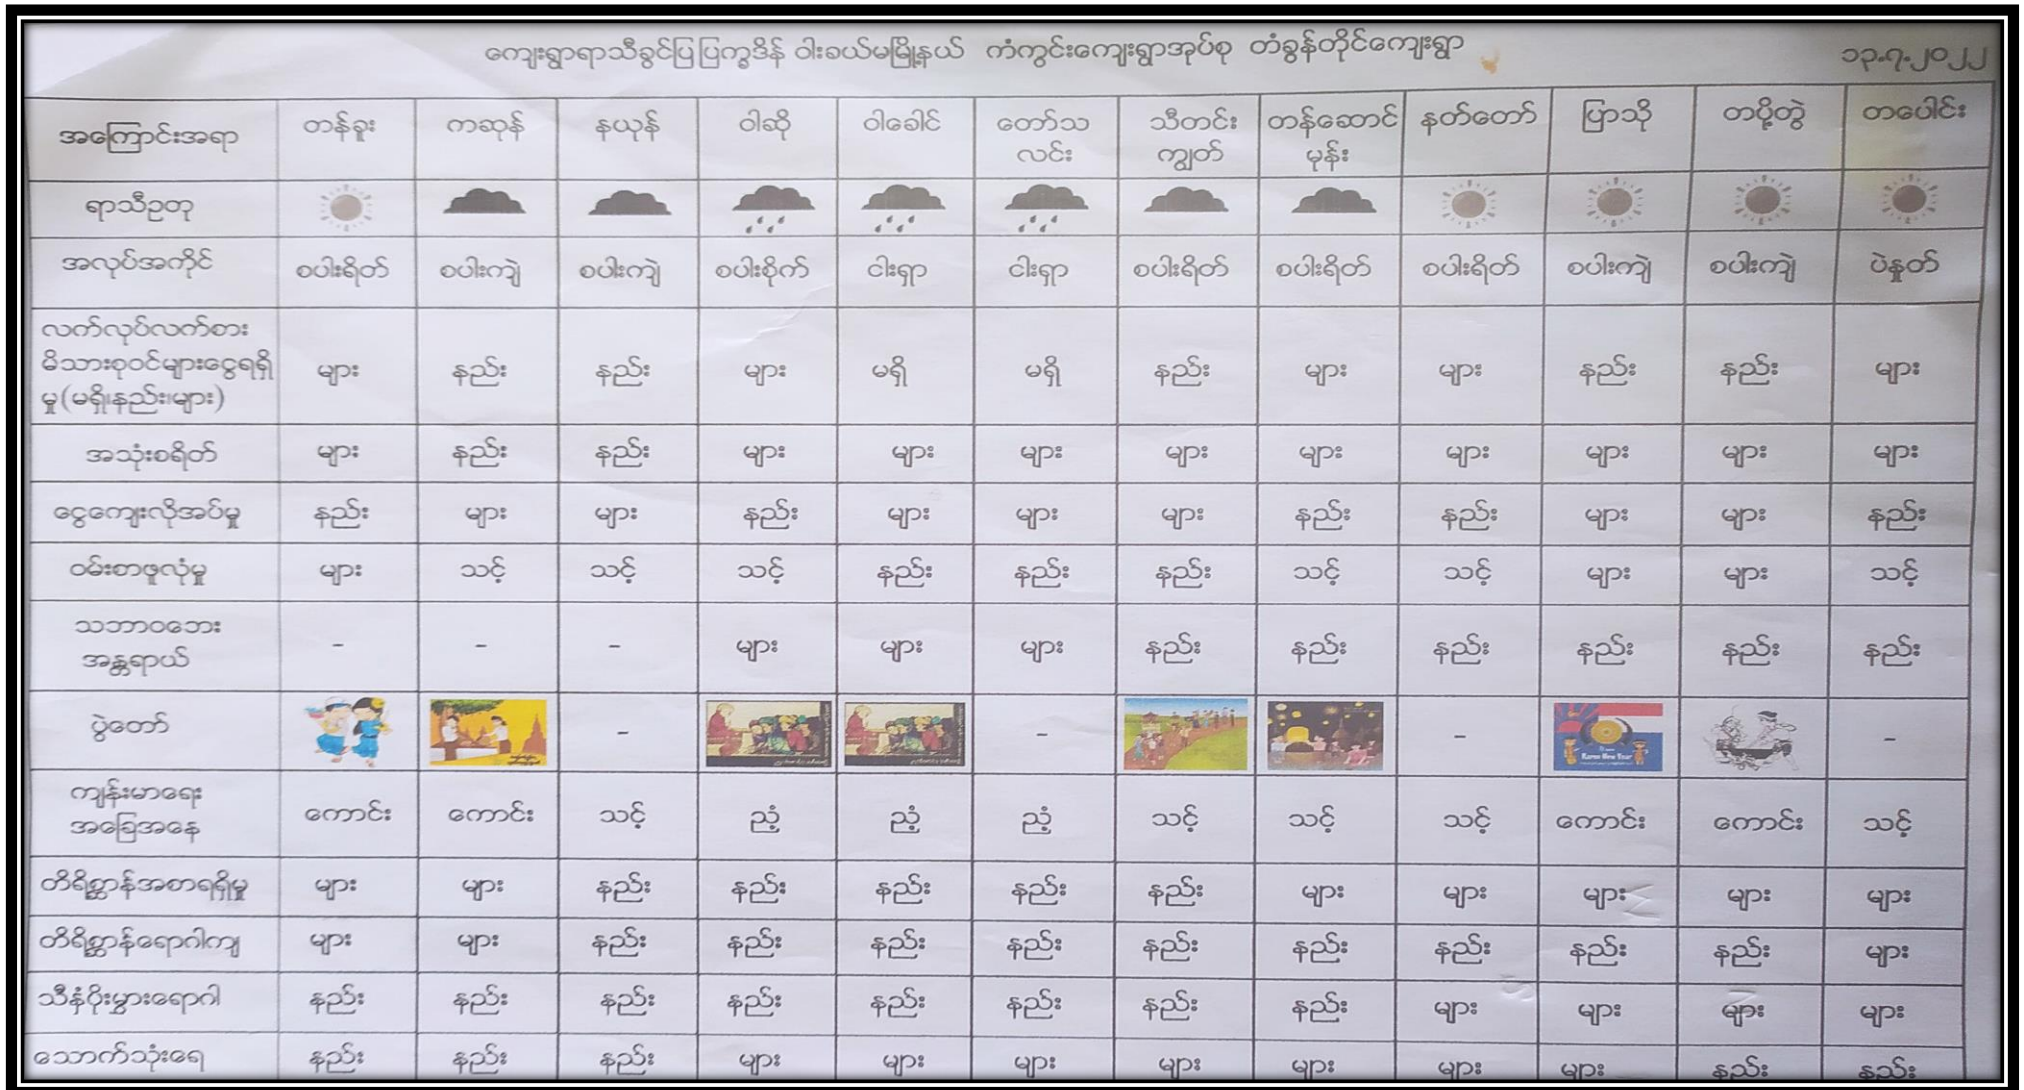 ကျေးရွာရာသီခွင်ပြပြက္ခဒိန် ဝါးခယ်မမြို့နယ် ကံကွင်းကျေးရွာအုပ်စု တံခွန်တိုင်ကျေးရွာ ၁၃.၇.၂၀၂၂
အကြောင်းအရာ တန်ခူး ကဆုန် နယုန် ဝါဆို ဝါခေါင် တော်သလင်း သီတင်းကျွတ် တန်ဆောင်မုန်း နတ်တော် ပြာသို တပို့တွဲ တပေါင်း
ရာသီဥတု
အလုပ်အကိုင် စပါးရိတ် စပါးကျဲ စပါးကျဲ စပါးစိုက် ငါးရှာ ငါးရှာ စပါးရိတ် စပါးရိတ် စပါးရိတ် စပါးကျဲ စပါးကျဲ ပဲနှုတ်
လက်လုပ်လက်စား
မိသားစုဝင်များငွေရရှိ
မှု(မရှိ၊နည်း၊များ) များ နည်း နည်း များ မရှိ မရှိ နည်း များ များ နည်း နည်း များ
အသုံးစရိတ် များ နည်း နည်း များ များ များ များ များ များ များ များ များ
ငွေကျေးလိုအပ်မှု နည်း များ များ နည်း များ များ များ နည်း နည်း များ များ နည်း
ဝမ်းစာဖူလုံမှု များ သင့် သင့် သင့် နည်း နည်း နည်း သင့် သင့် များ များ သင့်
သဘာဝဘေး
အန္တရာယ် - - - များ များ များ နည်း နည်း နည်း နည်း နည်း နည်း
ပွဲတော် - - - Karen New Year -
ကျန်းမာရေး
အခြေအနေ ကောင်း ကောင်း သင့် ညံ့ ညံ့ ညံ့ သင့် သင့် သင့် ကောင်း ကောင်း သင့်
တိရိစ္ဆာန်အစာရရှိမှု များ များ နည်း နည်း နည်း နည်း နည်း များ များ များ များ များ
တိရိစ္ဆာန်ရောဂါကျ များ များ နည်း နည်း နည်း နည်း နည်း နည်း နည်း နည်း နည်း များ
သီးနှံပိုးမွှားရောဂါ နည်း နည်း နည်း နည်း နည်း နည်း နည်း နည်း များ များ များ များ
သောက်သုံးရေ နည်း နည်း နည်း များ များ များ များ များ များ များ နည်း နည်း